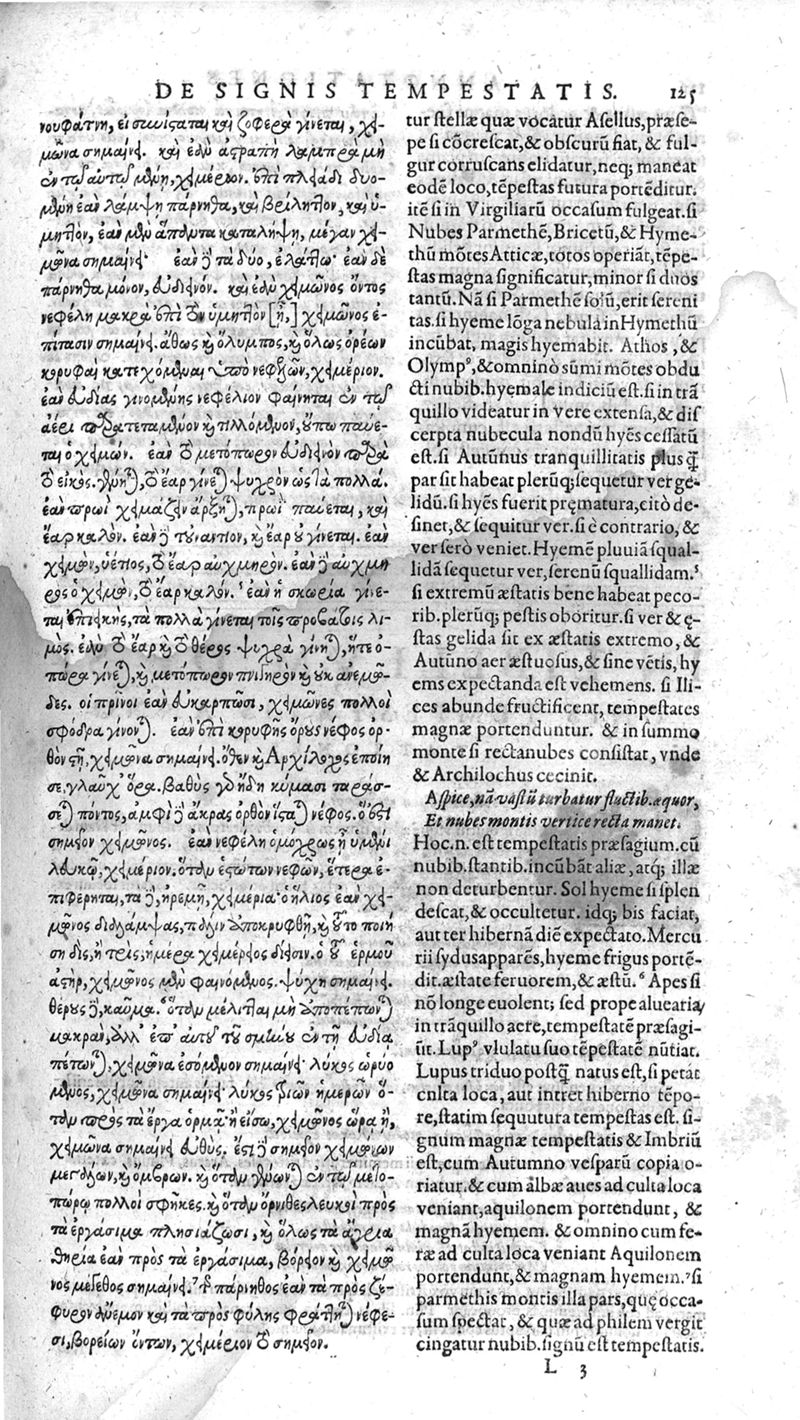 DE SIGNIS TEMPESTATIS. 125
νουφάτνη, εἰ συνίσταται καὶ ζοφερὰ γίνεται, χει-
μῶνα σημαίνει. καὶ ἐὰν ἀστραπὴ λαμπρὰ μὴ
ἐν τῷ αὐτῷ μένῃ, χειμέριον. ἐπὶ πλειάδι δυο-
μένῃ ἐὰν λάμψῃ πάρνηθα, καὶ βριληττὸν, καὶ ὑ-
μηττὸν, ἐὰν μὲν ἅπαντα καταλήψῃ, μέγαν χει-
μῶνα σημαίνει· ἐὰν δὲ τὰ δύο, ἐλάττω· ἐὰν δὲ
πάρνηθα μόνον, εὐδιεινόν. καὶ ἐὰν χειμῶνος ὄντος
νεφέλη μακρὰ ἐπὶ τὸν ὑμηττὸν [ᾖ,] χειμῶνος ἐ-
πίτασιν σημαίνει. ἄθως καὶ ὄλυμπος, καὶ ὅλως ὀρέων
κορυφαὶ κατεχόμεναι ὑπὸ νεφελῶν, χειμέριον.
ἐὰν εὐδίας γινομένης νεφέλιον φαίνηται ἐν τῷ
ἀέρι παρατεταμένον καὶ τιλλόμενον, οὔπω παύε-
ται ὁ χειμών. ἐὰν τὸ μετόπωρον εὐδιεινὸν παρὰ
τὸ εἰκὸς γένηται, τὸ ἔαρ γίνεται ψυχρὸν ὡς τὰ πολλά.
ἐὰν πρωὶ χειμάζειν ἄρξηται, πρωῒ παύεται, καὶ
ἔαρ καλόν. ἐὰν δὲ τοὐναντίον, καὶ ἔαρ οὐ γίνεται. ἐὰν
χειμὼν, ὑέτιος, τὸ ἔαρ αὐχμηρόν. ἐὰν δὲ αὐχμη
ρὸς ὁ χειμὼν, τὸ ἔαρ καλόν. ἐὰν ἡ σκωρία γίνε-
ται ἐπιεικὴς, τὰ πολλὰ γίνεται τοῖς προβάτοις λι-
μός. ἐὰν τὸ ἔαρ καὶ τὸ θέρος ψυχρὰ γίνηται, ἥ τε ὀ-
πώρα γίνεται, καὶ μετόπωρον πνιγηρὸν καὶ οὐκ ἀνεμῶ-
δες. οἱ πρῖνοι ἐὰν εὐκαρπῶσι, χειμῶνες πολλοὶ
σφόδρα γίνονται. ἐὰν ἐπὶ κορυφῆς ὄρους νέφος ὀρ-
θὸν στῇ, χειμῶνα σημαίνει. ὅθεν καὶ Ἀρχίλοχος ἐποίη
σε, γλαῦχ' ὅρα. βαθὺς γὰρ ἤδη κύμασι ταράσ-
σεται πόντος, ἀμφὶ δὲ ἄκρας ὀρθὸν ἵσταται νέφος. ὅ ἐστι
σημεῖον χειμῶνος. ἐὰν νεφέλη ὁμόχρως ᾖ ὑμένι
λευκῷ, χειμέριον. ὅταν ἑστώτων νεφῶν, ἕτερα ἐ-
πιφέρηται, τὰ δὲ, ἠρεμῇ, χειμέρια· ὁ ἥλιος ἐὰν χει-
μῶνος διαλάμψας, πάλιν ἀποκρυφθῇ, καὶ τοῦτο ποιή
σῃ δὶς, ἢ τρὶς, ἡμέρα χειμέριος δίεισιν. ὁ τοῦ ἑρμοῦ
ἀστὴρ, χειμῶνος μὲν φαινόμενος, ψύχη σημαίνει.
θέρους δὲ, καῦμα. ὅταν μέλιτται μὴ ἀποπέτωνται
μακρὰν, ἀλλ' ἐπ' αὐτοῦ τοῦ σμήνου ἐν τῇ εὐδίᾳ
πέτωνται, χειμῶνα ἐσόμενον σημαίνει· λύκος ὠρυό
μενος, χειμῶνα σημαίνει· λύκος τριῶν ἡμερῶν ὅ-
ταν πρὸς τὰ ἔργα ὁρμᾷ ἢ εἴσω, χειμῶνος ὥρᾳ ᾖ,
χειμῶνα σημαίνει εὐθύς. ἔστι δὲ σημεῖον χειμώνων
μεγάλων, καὶ ὄμβρων, καὶ ὅταν γένωνται ἐν τῷ μετο-
πώρῳ πολλοὶ σφῆκες. καὶ ὅταν ὄρνιθες λευκοὶ πρὸς
τὰ ἐργάσιμα πλησιάζωσι, καὶ ὅλως τὰ ἄγρια
θηρία ἐὰν πρὸς τὰ ἐργάσιμα, βόρειον καὶ χειμῶ
νος μέγεθος σημαίνει. τῆς πάρνηθος ἐὰν τὰ πρὸς ζέ-
φυρον ἄνεμον καὶ τὰ πρὸς φύλης φράττηται νέφε-
σι, βορείων ὄντων, χειμέριον τὸ σημεῖον.
tur stellæ quæ vocãtur Asellus, præse-
pe si cõcrescat, & obscurũ fiat, & ful-
gur corruscans elidatur, neq; maneat
eodẽ loco, tẽpestas futura portẽditur.
itẽ si in Virgiliarũ occasum fulgeat. si
Nubes Parmethẽ, Bricetũ, & Hyme-
thũ mõtes Atticæ, totos operiãt, tẽpe-
stas magna significatur, minor si duos
tantũ. Nã si Parmethẽ solũ, erit sereni
tas. si hyeme lõga nebula in Hymethũ
incũbat, magis hyemabit. Athos, &
Olympꝰ, & omninò sũmi mõtes obdu
cti nubib. hyemale indiciũ est. si in trã
quillo videatur in Vere extensa, & dis
cerpta nubecula nondũ hyẽs cessatũ
est. si Autũnus tranquillitatis plus q̃
par sit habeat plerũq; sequetur ver ge-
lidũ. si hyẽs fuerit pręmatura, citò de-
sinet, & sequitur ver. si è contrario, &
ver serò veniet. Hyemẽ pluuiã squal-
lidã sequetur ver, serenũ squallidam.⁵
si extremũ æstatis bene habeat peco-
rib. plerũq; pestis oboritur. si ver & ę-
stas gelida sit ex æstatis extremo, &
Autũno aer æstuosus, & sine vẽtis, hy
ems expectanda est vehemens. si Ili-
ces abunde fructificent, tempestates
magnæ portenduntur. & in summo
monte si recta nubes consistat, vnde
& Archilochus cecinit.
Aspice, nã vastũ turbatur fluctib. æquor,
Et nubes montis vertice recta manet.
Hoc. n. est tempestatis præsagium. cũ
nubib. stantib. incũbãt aliæ, atq; illæ
non deturbentur. Sol hyeme si splen
descat, & occultetur. idq; bis faciat,
aut ter hibernã diẽ expectato. Mercu
rii sydus apparẽs, hyeme frigus portẽ-
dit. æstate feruorem, & æstũ.⁶ Apes si
nõ longe euolent; sed prope aluearia
in trãquillo aere, tempestatẽ præsagi-
ũt. Lupꝰ vlulatu suo tẽpestatẽ nũtiat.
Lupus triduo postq̃ natus est, si petat
culta loca, aut intret hiberno tẽpo-
re, statim sequutura tempestas est. si-
gnum magnæ tempestatis & Imbriũ
est, cum Autumno vesparũ copia o-
riatur. & cum albæ aues ad culta loca
veniant, aquilonem portendunt, &
magnã hyemem. & omnino cum fe-
ræ ad culta loca veniant Aquilonem
portendunt, & magnam hyemem.⁷ si
parmethis montis illa pars, quę occa-
sum spectat, & quæ ad philem vergit
cingatur nubib. signũ est tempestatis.
L 3